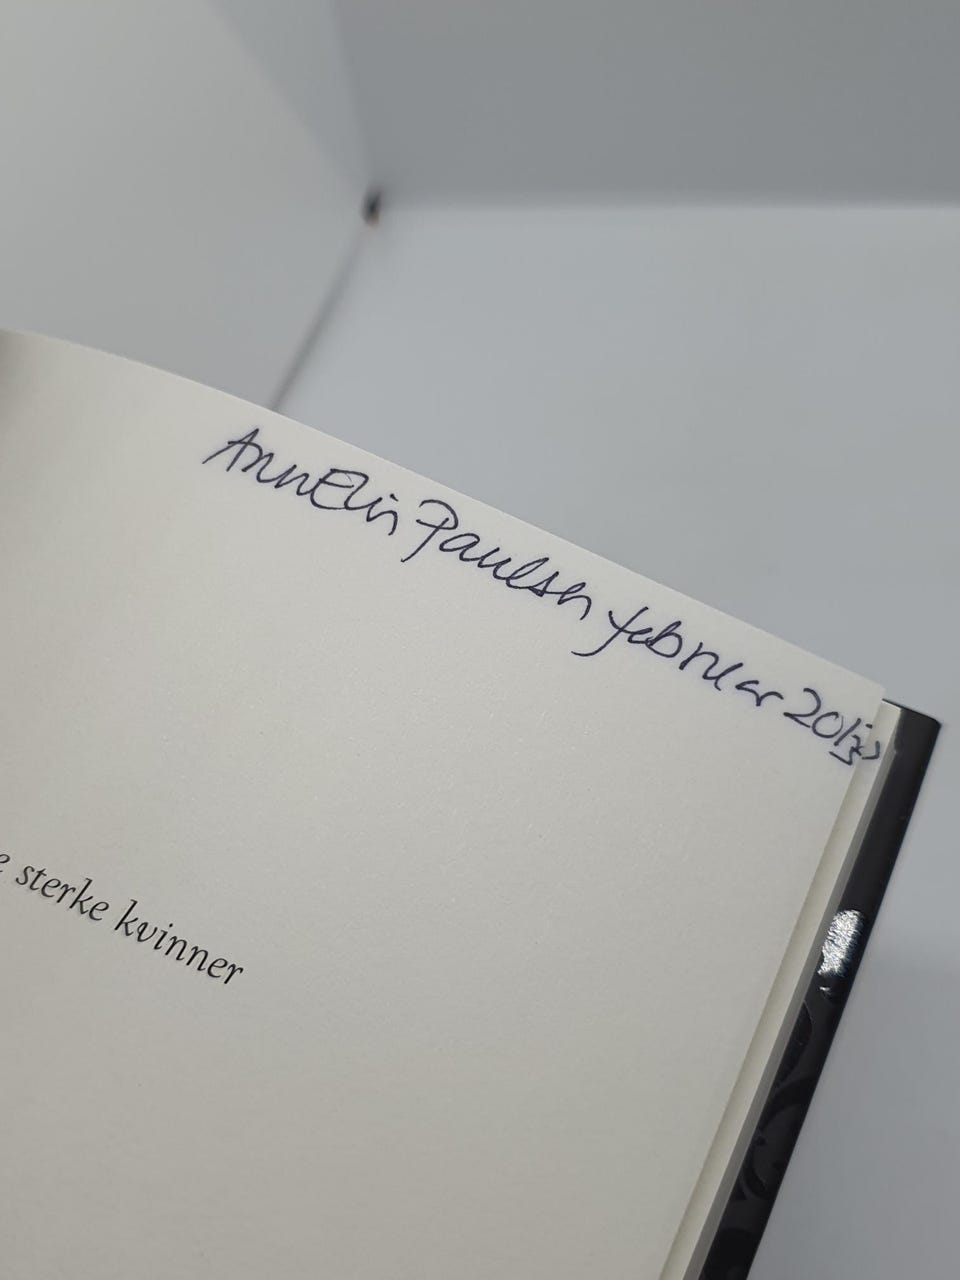 AnnElin Paulsen februar 2013
e sterke kvinner